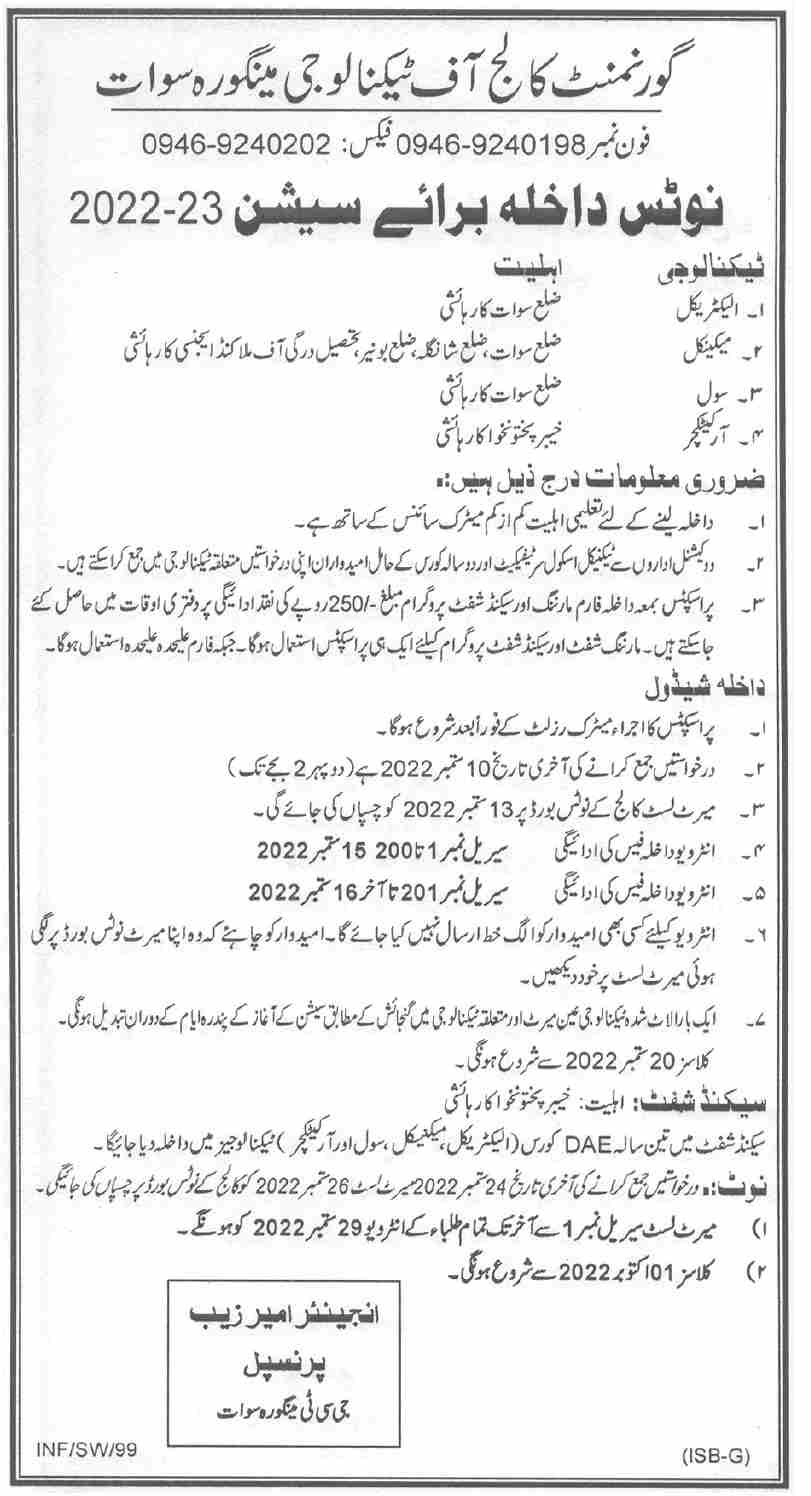 گورنمنٹ کالج آف ٹیکنالوجی مینگورہ سوات
فون نمبر 0946-9240198 فیکس: 0946-9240202
نوٹس داخلہ برائے سیشن 2022-23
ٹیکنالوجی اہلیت
۱۔ الیکٹریکل ضلع سوات کا رہائشی
۲۔ میکینکل ضلع سوات، ضلع شانگلہ، ضلع بونیر، تحصیل درگی آف ملاکنڈ ایجنسی کا رہائشی
۳۔ سول ضلع سوات کا رہائشی
۴۔ آرکیٹکچر خیبر پختونخوا کا رہائشی
ضروری معلومات درج ذیل ہیں:۔
۱۔ داخلہ لینے کے لئے تعلیمی اہلیت کم از کم میٹرک سائنس کے ساتھ ہے۔
۲۔ ووکیشنل اداروں سے ٹیکنیکل اسکول سرٹیفیکیٹ اور دو سالہ کورس کے حامل امیدواران اپنی درخواستیں متعلقہ ٹیکنالوجی میں جمع کرا سکتے ہیں۔
۳۔ پراسپکٹس بمعہ داخلہ فارم مارننگ اور سیکنڈ شفٹ پروگرام مبلغ -/250 روپے کی نقد ادائیگی پر دفتری اوقات میں حاصل کئے
جا سکتے ہیں۔ مارننگ شفٹ اور سیکنڈ شفٹ پروگرام کیلئے ایک ہی پراسپکٹس استعمال ہوگا۔ جبکہ فارم علیحدہ علیحدہ استعمال ہوگا۔
داخلہ شیڈول
۱۔ پراسپکٹس کا اجراء میٹرک رزلٹ کے فوراً بعد شروع ہوگا۔
۲۔ درخواستیں جمع کرانے کی آخری تاریخ 10 ستمبر 2022 ہے (دوپہر 2 بجے تک)
۳۔ میرٹ لسٹ کالج کے نوٹس بورڈ پر 13 ستمبر 2022 کو چسپاں کی جائے گی۔
۴۔ انٹرویو داخلہ فیس کی ادائیگی سیریل نمبر 1 تا 200 15 ستمبر 2022
۵۔ انٹرویو داخلہ فیس کی ادائیگی سیریل نمبر 201 تا آخر 16 ستمبر 2022
۶۔ انٹرویو کیلئے کسی بھی امیدوار کو الگ خط ارسال نہیں کیا جائے گا۔ امیدوار کو چاہئے کہ وہ اپنا میرٹ نوٹس بورڈ پر لگی
ہوئی میرٹ لسٹ پر خود دیکھیں۔
۷۔ ایک بار الاٹ شدہ ٹیکنالوجی عین میرٹ اور متعلقہ ٹیکنالوجی میں گنجائش کے مطابق سیشن کے آغاز کے پندرہ ایام کے دوران تبدیل ہونگی۔
کلاسز 20 ستمبر 2022 سے شروع ہونگی۔
سیکنڈ شفٹ: اہلیت: خیبر پختونخوا کا رہائشی
سیکنڈ شفٹ میں تین سالہ DAE کورس (الیکٹریکل، میکینیکل، سول اور آرکیٹکچر) ٹیکنالوجیز میں داخلہ دیا جائیگا۔
نوٹ:۔ درخواستیں جمع کرانے کی آخری تاریخ 24 ستمبر 2022 میرٹ لسٹ 26 ستمبر 2022 کو کالج کے نوٹس بورڈ پر چسپاں کی جائیگی۔
۱) میرٹ لسٹ سیریل نمبر 1 سے آخر تک تمام طلباء کے انٹرویو 29 ستمبر 2022 کو ہونگے۔
۲) کلاسز 01 اکتوبر 2022 سے شروع ہونگی۔
انجینئر امیر زیب
پرنسپل
جی سی ٹی مینگورہ سوات
INF/SW/99 (ISB-G)